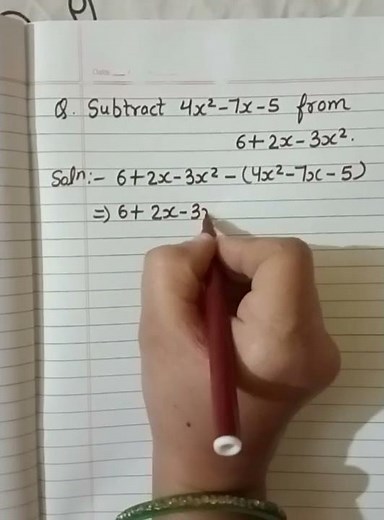 Q. Subtract 4x²-7x-5 from
6+2x-3x².
Soln:- 6+2x-3x² - (4x²-7x-5)
=) 6+2x-3x